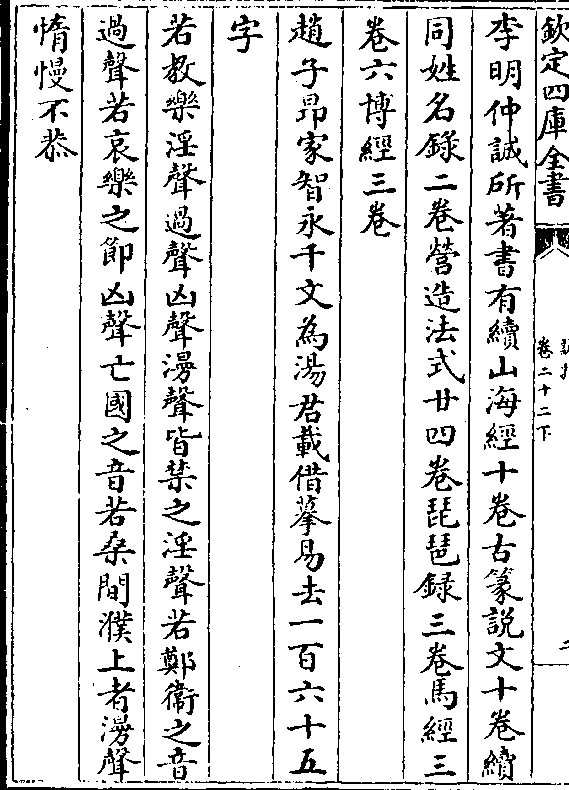 欽定四庫全書
卷二十二下
李明仲誠所著書有續山海經十卷古篆説文十卷續
同姓名錄二卷營造法式廿四卷琵琶録三卷馬經三
卷六博經三卷
趙子昂家智永千文為湯君載借摹易去一百六十五
字
若教樂淫聲過聲凶聲漫聲皆禁之淫聲若鄭衞之音
過聲若哀樂之節凶聲亡國之音若桑間濮上者漫聲
惰慢不恭